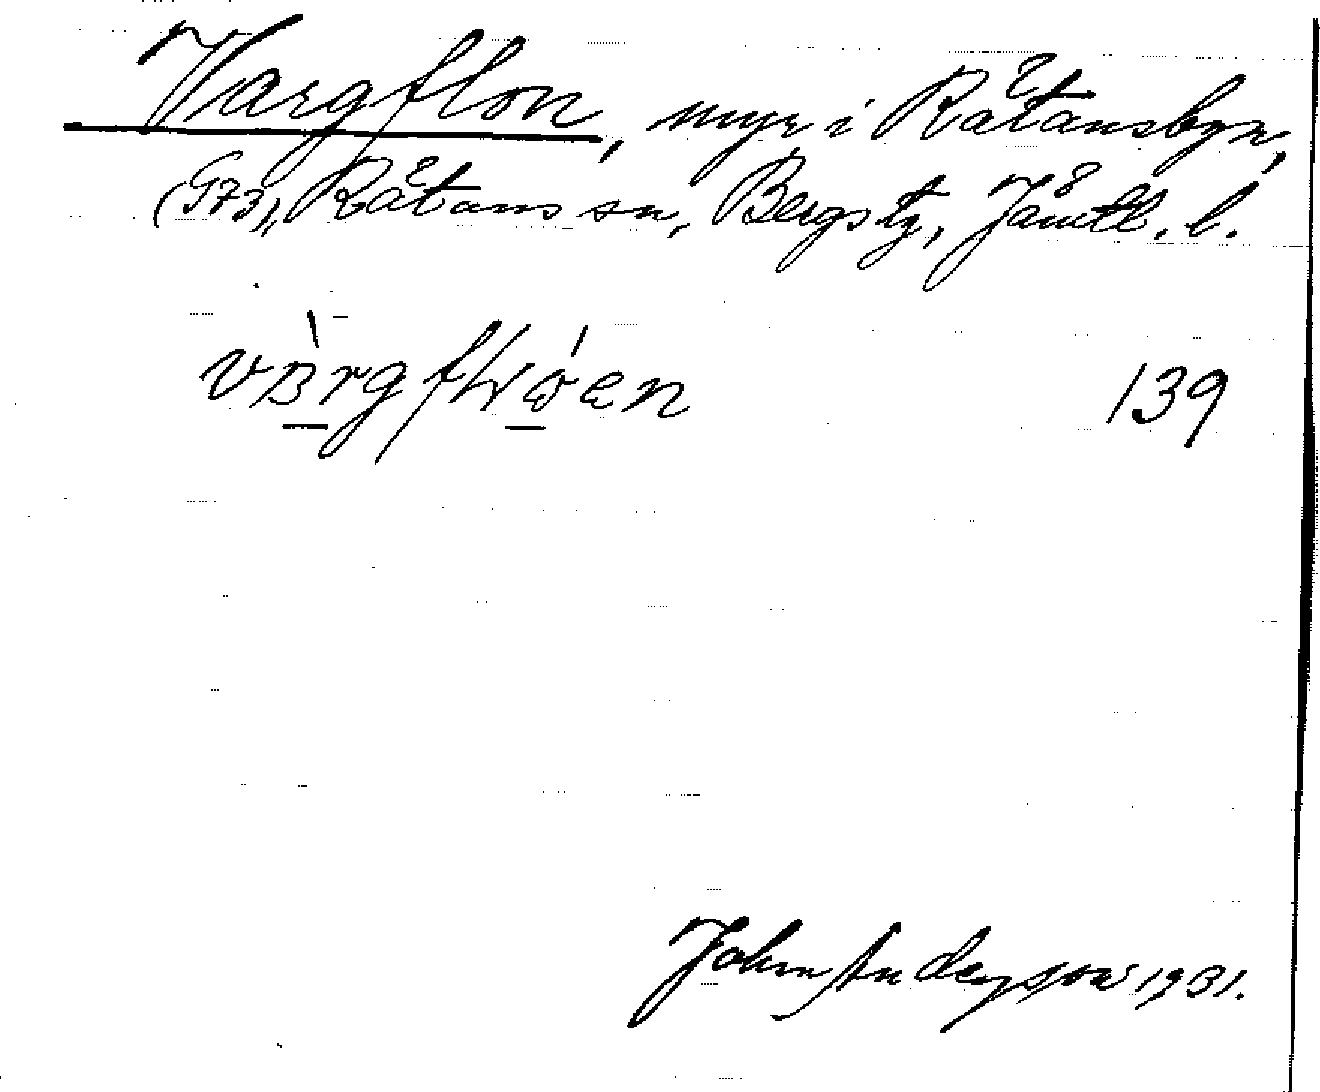 Vargflon, myr i Rätansbyn,
(G73), Rätans sn, Bergs tg, Jämtl. l.
139
John Anderson 1931.